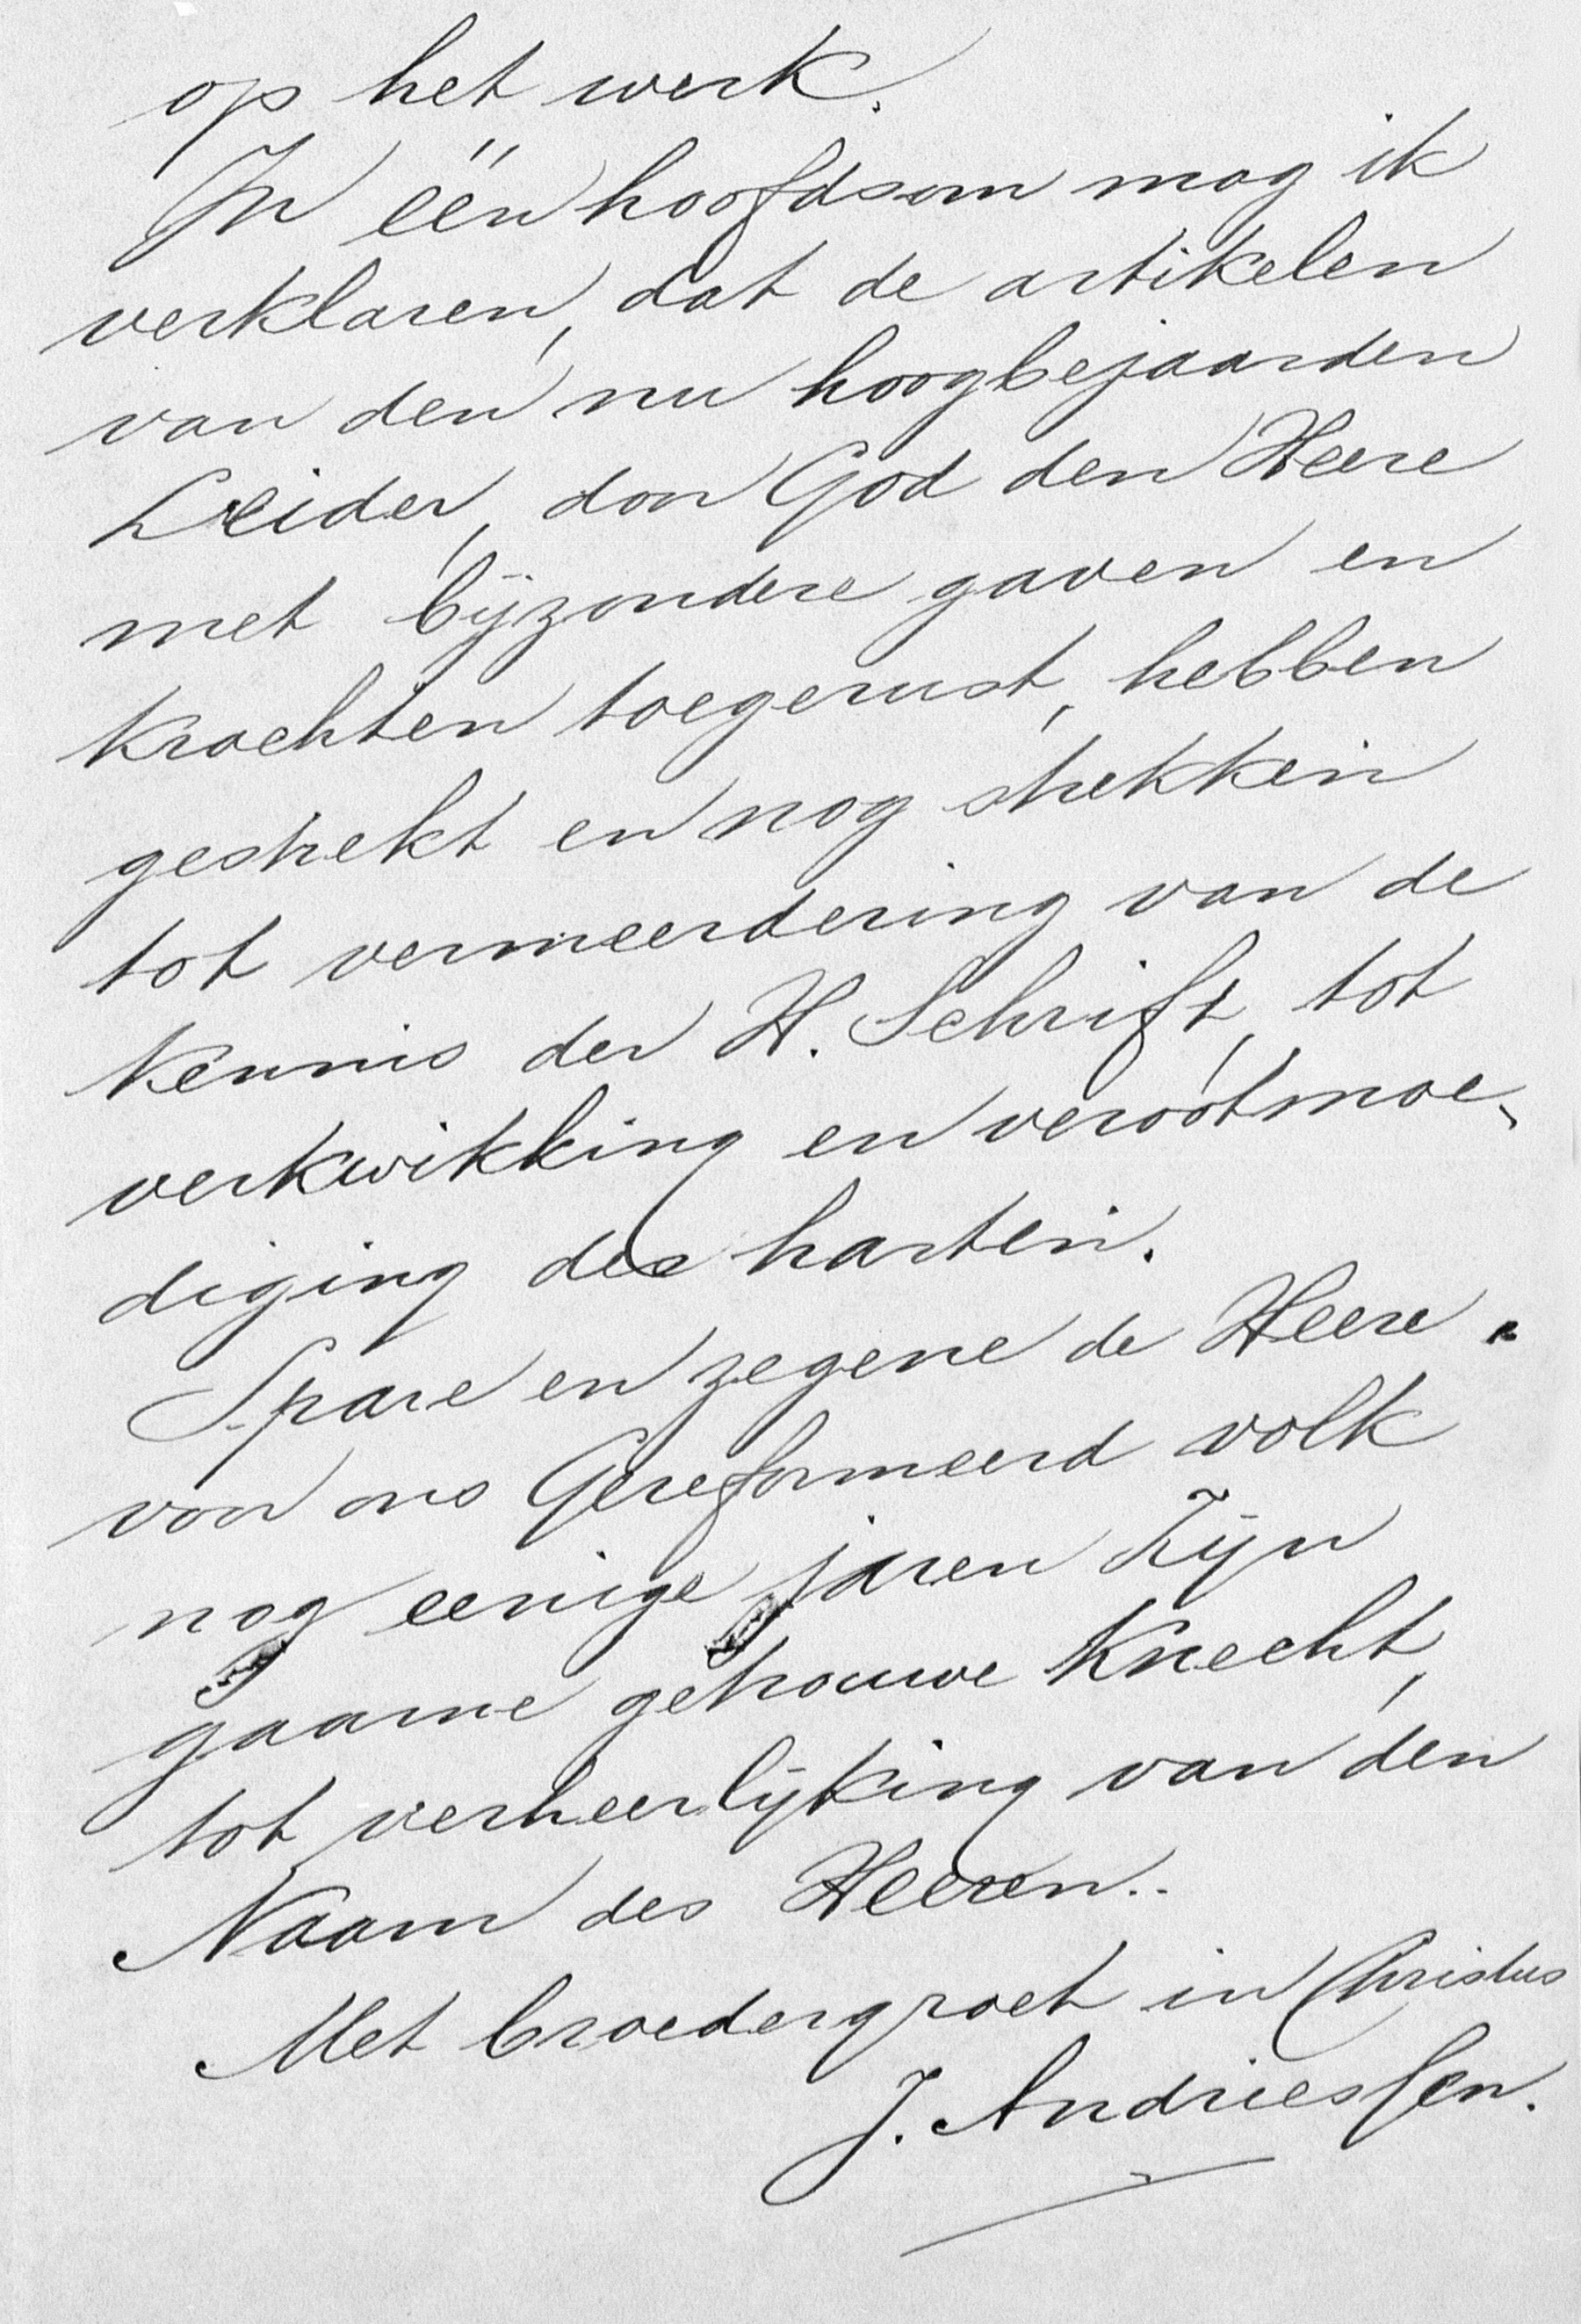 op het werk.
In één hoofdsom mag ik
verklaren, dat de artikelen
van den nu hoogbejaarden
Leider, door God den Heere
met bijzondere gaven en
krachten toegerust, hebben
gestrekt en nog strekken
tot vermeerdering van de
kennis der H. Schrift, tot
verkwikking en verootmoe-
diging der harten.
Spare en zegene de Heere
voor ons Gereformeerd volk
nog eenige jaren Zijn
gaarne getrouwe knecht,
tot verheerlijking van den
Naam des Heeren.
Met broedergroet in Christus
J. Andriessen.